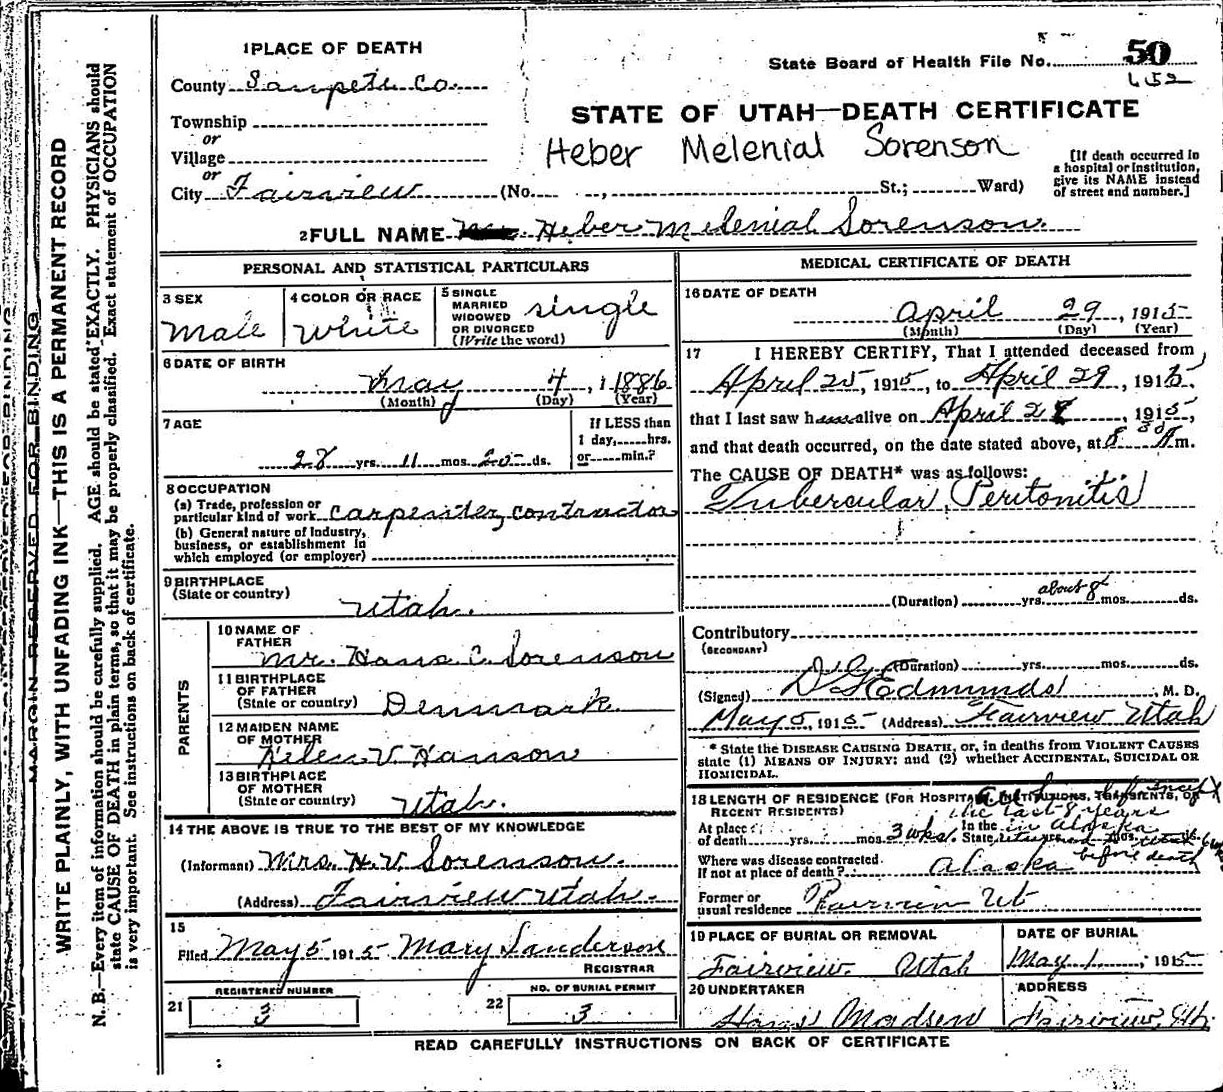 1 PLACE OF DEATH
County Sanpete Co.
Township
or
Village
or
City Fairview (No. , St.; Ward)
State Board of Health File No. 50
652
STATE OF UTAH—DEATH CERTIFICATE
Heber Melenial Sorenson
[If death occurred in
a hospital or institution,
give its NAME instead
of street and number.]
2 FULL NAME Heber Melenial Sorenson.
PERSONAL AND STATISTICAL PARTICULARS
3 SEX
Male
4 COLOR OR RACE
White
5 SINGLE
MARRIED
WIDOWED
OR DIVORCED
(Write the word)
single
6 DATE OF BIRTH
May 4, 1 1886
(Month) (Day) (Year)
7 AGE
28 yrs. 11 mos. 25 ds.
If LESS than
1 day, hrs.
or min.?
8 OCCUPATION
(a) Trade, profession or
particular kind of work carpenter, contractor
(b) General nature of industry,
business, or establishment in
which employed (or employer)
9 BIRTHPLACE
(State or country)
Utah.
PARENTS
10 NAME OF
FATHER
Mr. Hans C. Sorenson
11 BIRTHPLACE
OF FATHER
(State or country) Denmark.
12 MAIDEN NAME
OF MOTHER
V. Hanson
13 BIRTHPLACE
OF MOTHER
(State or country) Utah.
14 THE ABOVE IS TRUE TO THE BEST OF MY KNOWLEDGE
(Informant) Mrs. H. V. Sorenson.
(Address) Fairview Utah.
15
Filed May 5 1915 Mary Sanderson
REGISTRAR
21 REGISTERED NUMBER
3
22 NO. OF BURIAL PERMIT
3
MEDICAL CERTIFICATE OF DEATH
16 DATE OF DEATH
April 29, 1915
(Month) (Day) (Year)
17 I HEREBY CERTIFY, That I attended deceased from
April 25, 1915, to April 29, 1915,
that I last saw him alive on April 28, 1915,
and that death occurred, on the date stated above, at 8 m.
The CAUSE OF DEATH* was as follows:
Tubercular Peritonitis
(Duration) yrs. about 8 mos. ds.
Contributory
(SECONDARY)
(Duration) yrs. mos. ds.
(Signed) D G Edmunds, M. D.
May 5, 1915 (Address) Fairview Utah
* State the DISEASE CAUSING DEATH, or, in deaths from VIOLENT CAUSES
state (1) MEANS OF INJURY; and (2) whether ACCIDENTAL, SUICIDAL OR
HOMICIDAL.
18 LENGTH OF RESIDENCE (FOR HOSPITALS, INSTITUTIONS, TRANSIENTS, OR
RECENT RESIDENTS) the last 8 years
At place
of death yrs. mos. 3 wks. In the
State in Alaska
Where was disease contracted,
If not at place of death? Alaska before death
Former or
usual residence Fairview Ut
19 PLACE OF BURIAL OR REMOVAL
Fairview Utah
DATE OF BURIAL
May 1, 1915
20 UNDERTAKER
Hans Madsen
ADDRESS
Fairview, Ut.
READ CAREFULLY INSTRUCTIONS ON BACK OF CERTIFICATE
MARGIN RESERVED FOR BINDING
WRITE PLAINLY, WITH UNFADING INK—THIS IS A PERMANENT RECORD
N. B.—Every item of information should be carefully supplied. AGE should be stated EXACTLY. PHYSICIANS should
state CAUSE OF DEATH in plain terms, so that it may be properly classified. Exact statement of OCCUPATION
is very important. See instructions on back of certificate.